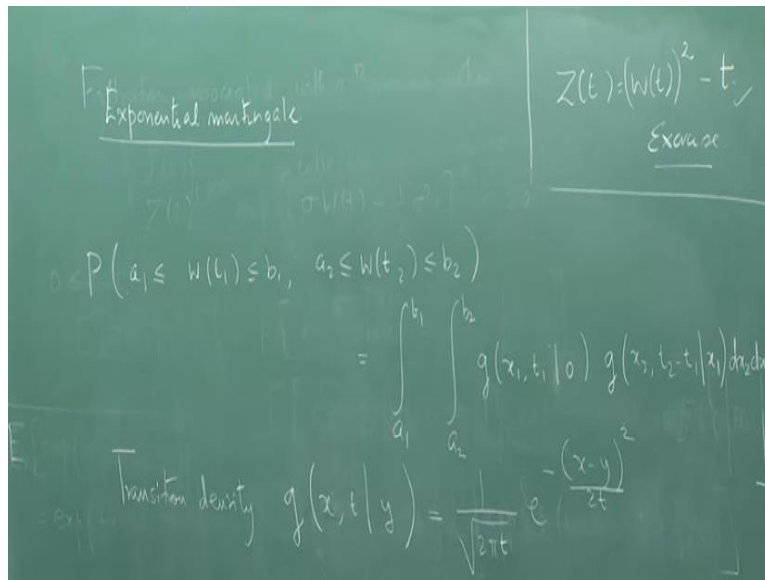 Exponential martingale
Z(t) = (W(t))² - t ✓
Exercise
P(a₁ ≤ W(t₁) ≤ b₁, a₂ ≤ W(t₂) ≤ b₂)
= ∫_{a₁}^{b₁} ∫_{a₂}^{b₂} g(x₁, t₁ | 0) g(x₂, t₂-t₁ | x₁) dx₂ dx
Transition density g(x, t | y) = 1/√(2πt) e^{-(x-y)²/2t}